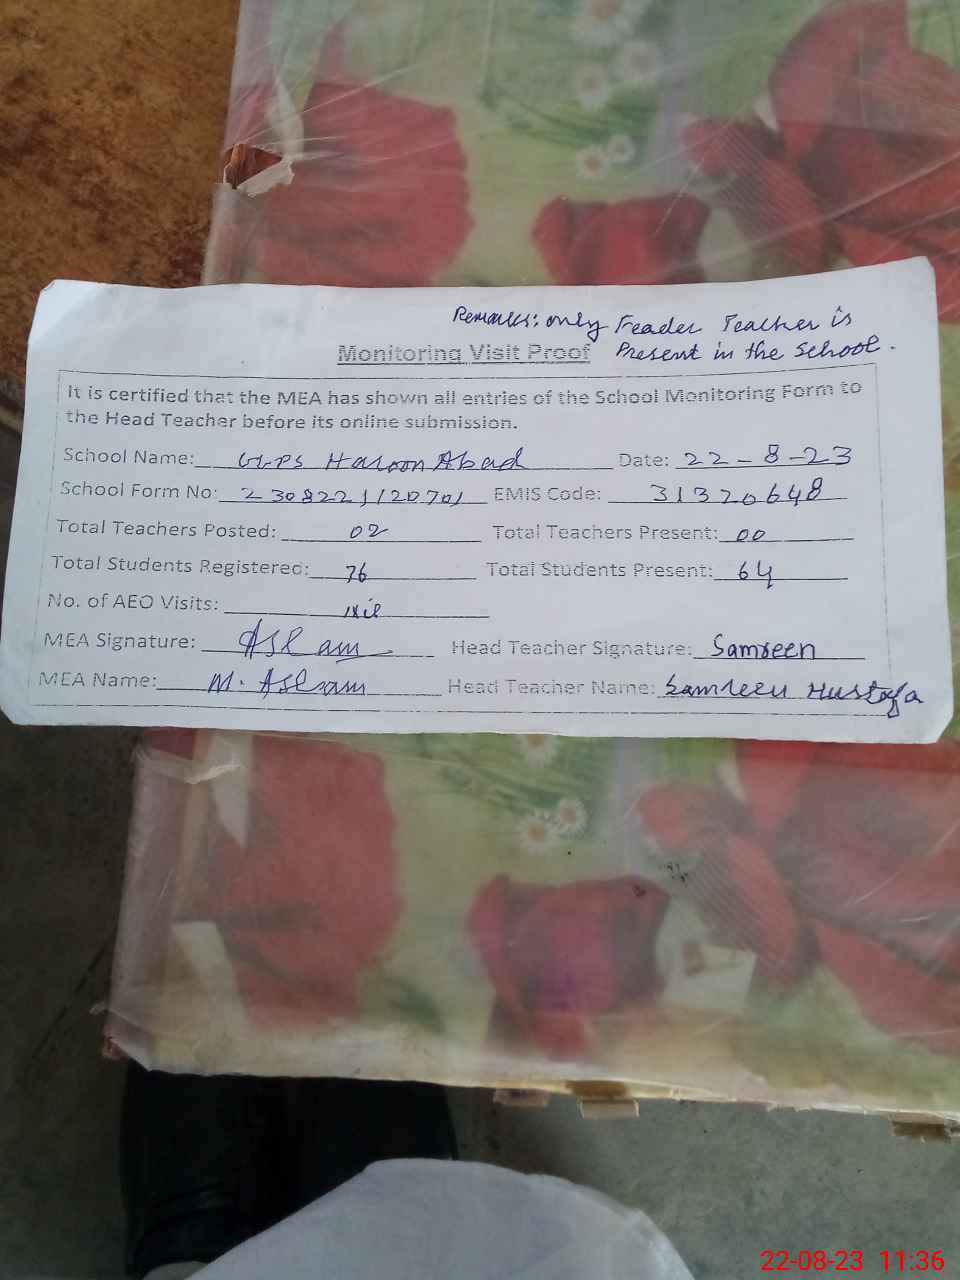 Remarks: only Feader Teacher is
Present in the School.
Monitoring Visit Proof
It is certified that the MEA has shown all entries of the School Monitoring Form to
the Head Teacher before its online submission.
School Name: GGPS Haroon Abad Date: 22-8-23
School Form No: 2308221120701 EMIS Code: 31320648
Total Teachers Posted: 02 Total Teachers Present: 00
Total Students Registered: 76 Total Students Present: 64
No. of AEO Visits: Nil
MEA Signature: Aslam Head Teacher Signature: Samreen
MEA Name: M. Aslam Head Teacher Name: Samreen Mustafa
22-08-23 11:36